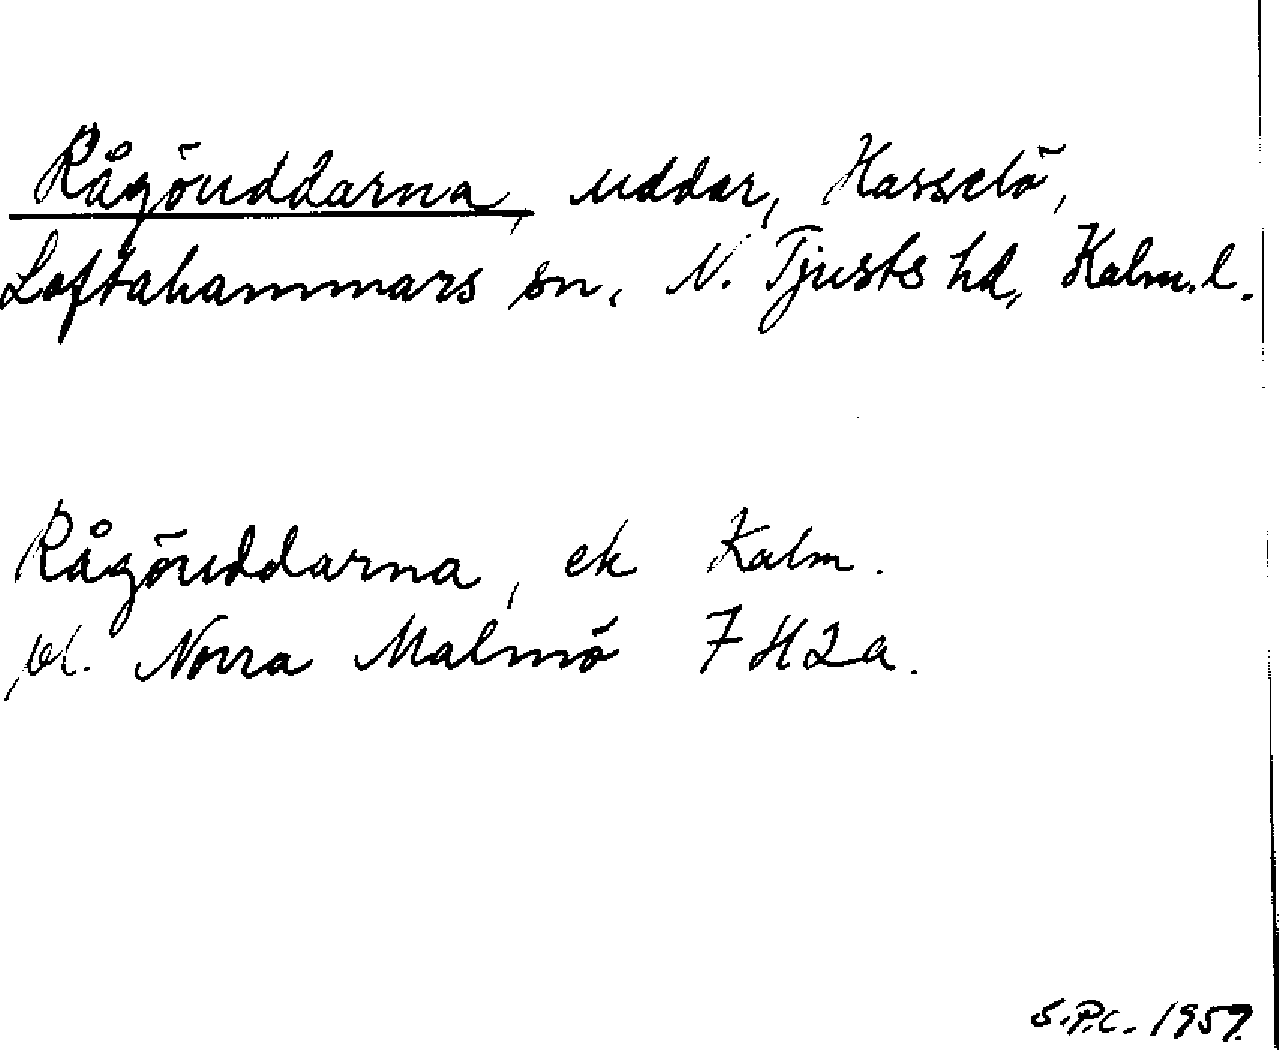 Rågöuddarna, uddar, Hasselö,
Loftahammars sn, N. Tjusts hd, Kalm.l.
Rågöuddarna, ek Kalm.
bl. Norra Malmö 7H2a.
S.P.C. 1959.